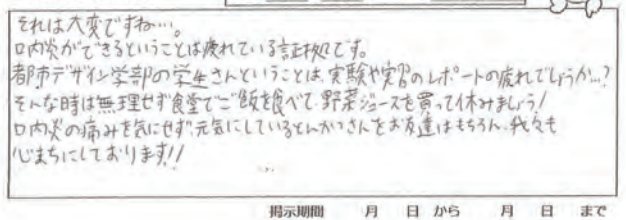 それは大変ですね…。
口内炎ができるということは疲れている証拠です。
都市デザイン学部の学生さんということは、実験や実習のレポートの疲れでしょうか…?
そんな時は無理せず食堂でご飯を食べて、野菜ジュースを買って休みましょう!
口内炎の痛みを気にせず、元気にしているとんかつさんをお友達はもちろん、我々も
心まちにしております!!
掲示期間　月　日 から　月　日 まで